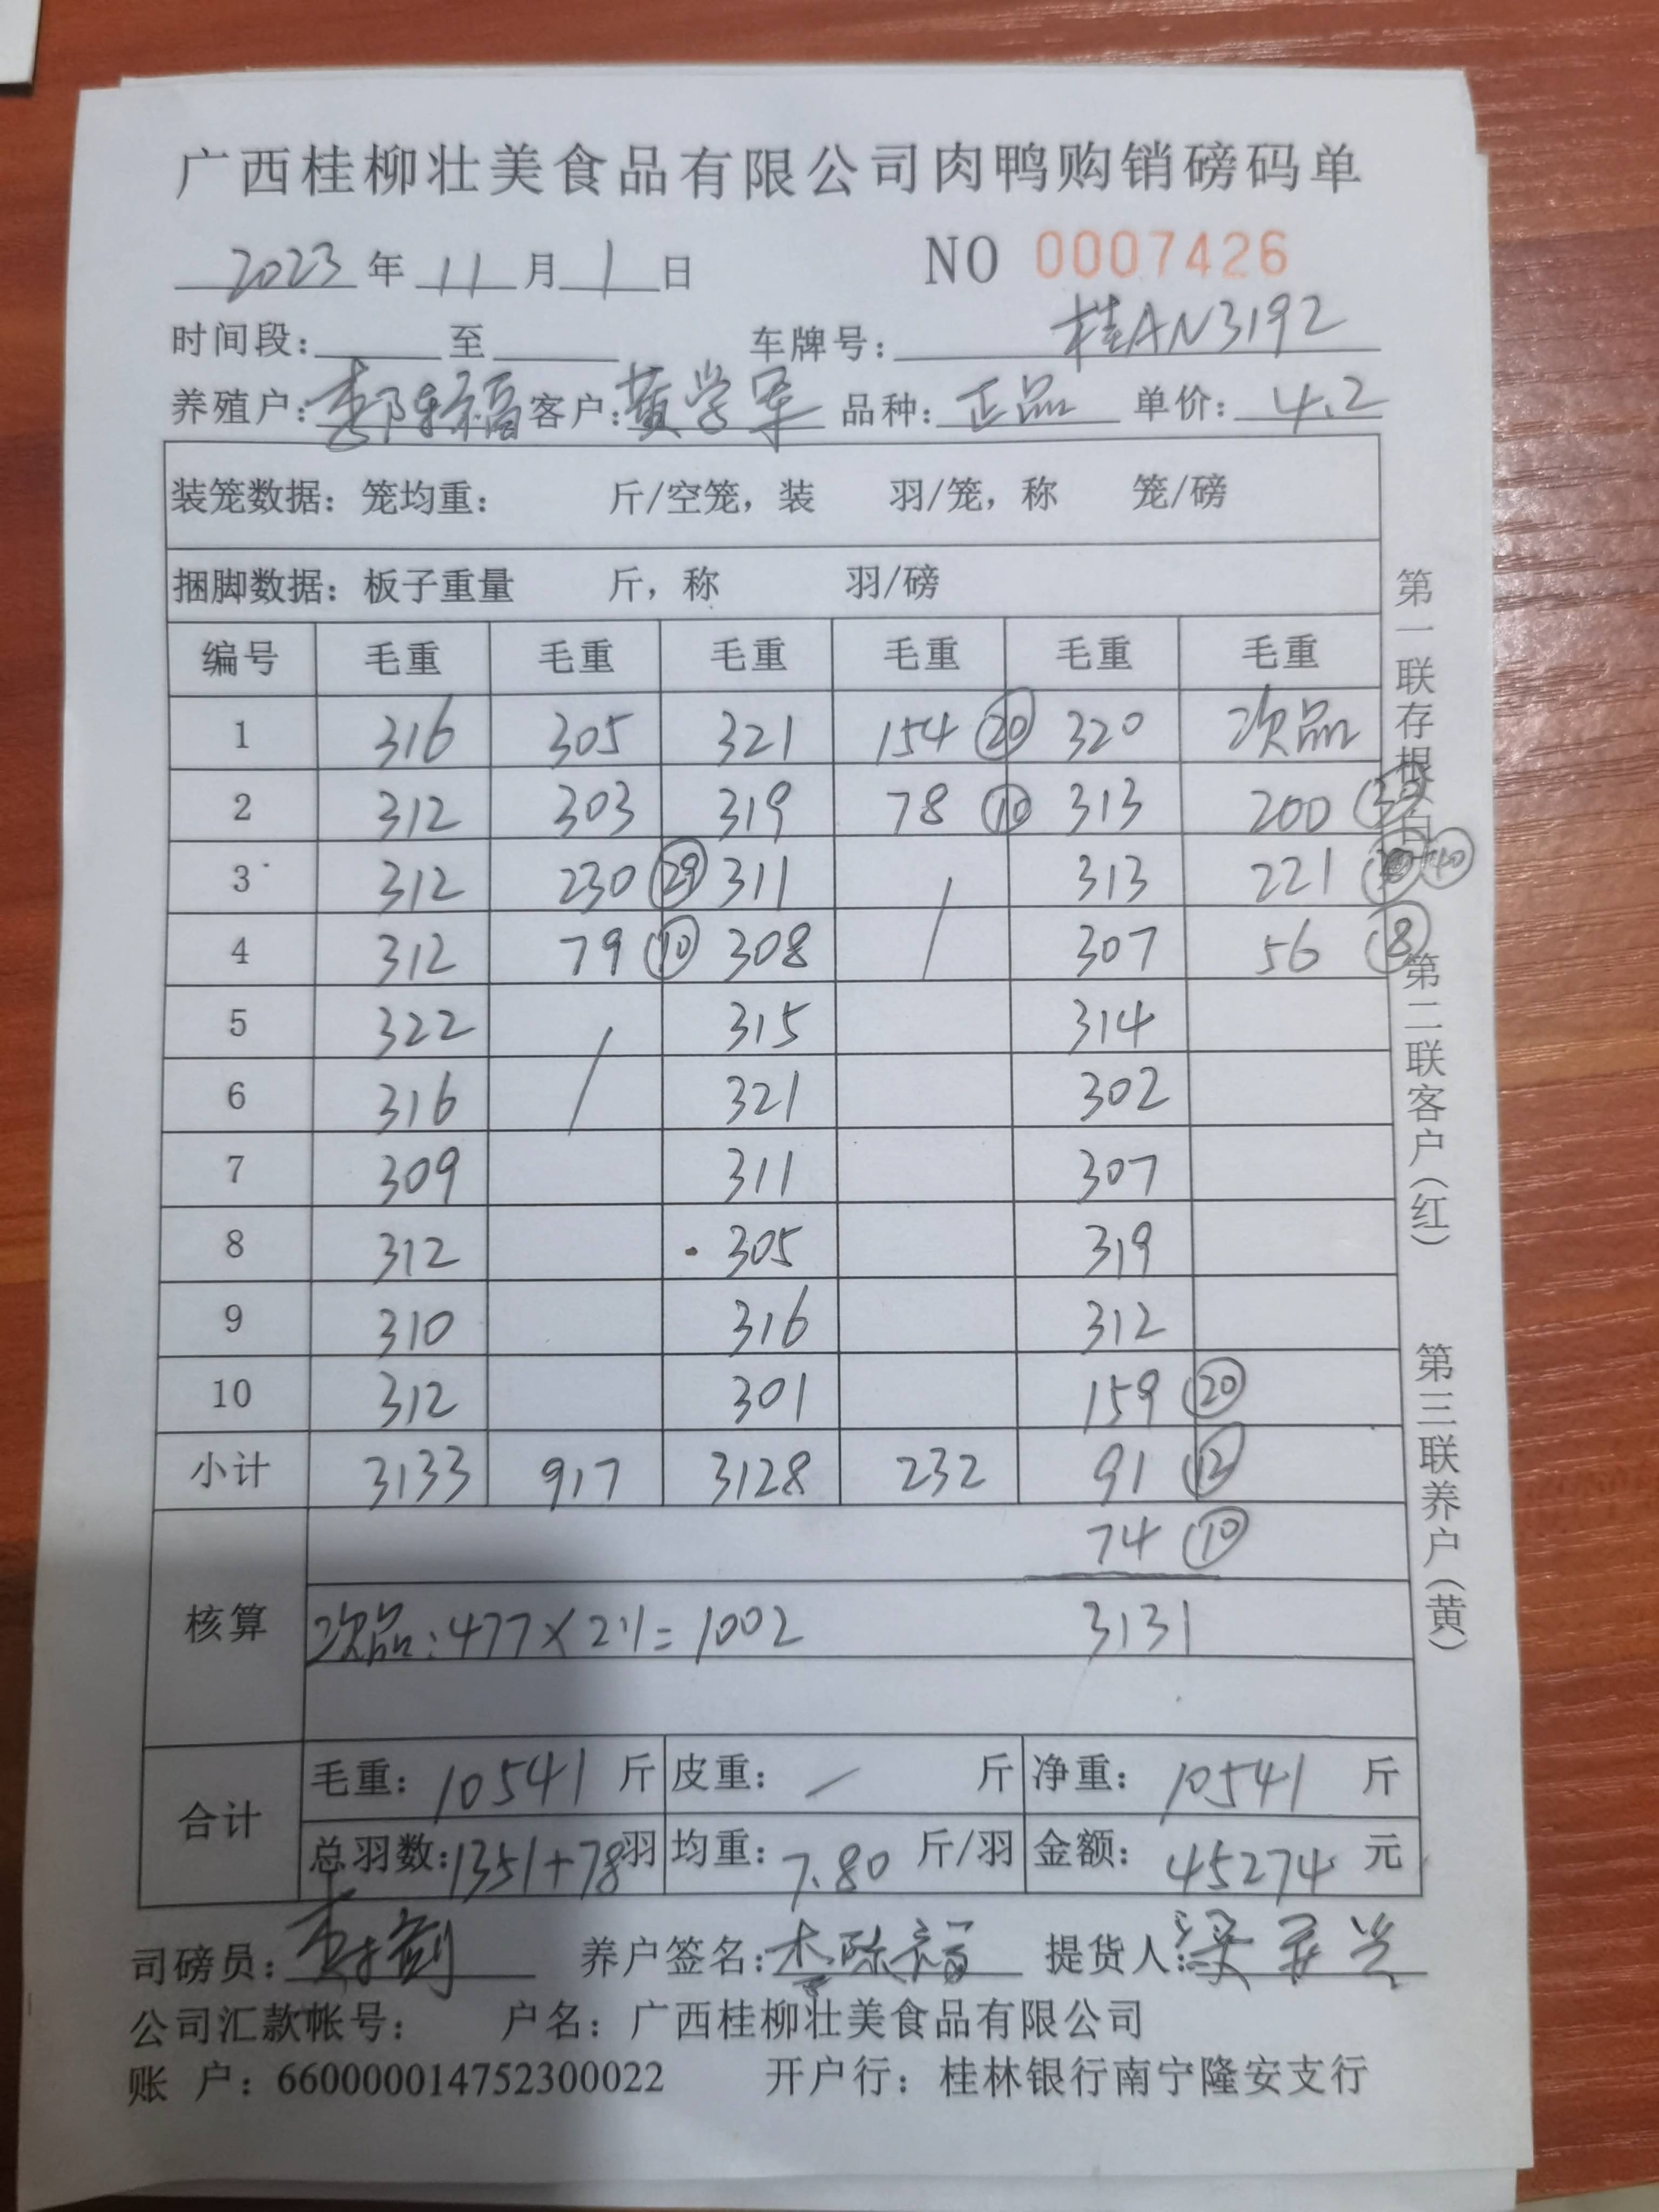 广西桂柳壮美食品有限公司肉鸭购销磅码单
2023 年 11 月 1 日 NO 0007426
时间段: 至 车牌号: 桂AN3192
养殖户: 福 客户: 黄学军 品种: 正品 单价: 4.2
装笼数据: 笼均重: 斤/空笼, 装 羽/笼, 称 笼/磅
捆脚数据: 板子重量 斤, 称 羽/磅
编号 毛重 毛重 毛重 毛重 毛重 毛重
1 316 305 321 154 ⑳ 320 次品
2 312 303 319 78 ⑩ 313 200
3 312 230 ㉙ 311 / 313 221 40
4 312 79 ⑩ 308 307 56 ⑧
5 322 / 315 314
6 316 321 302
7 309 311 307
8 312 305 319
9 310 316 312
10 312 301 159 ⑳
小计 3133 917 3128 232 91 ⑫
74 ⑩
核算 次品: 477×2.1= 1002 3131
合计 毛重: 10541 斤 皮重: / 斤 净重: 10541 斤
总羽数: 1351+78 羽 均重: 7.80 斤/羽 金额: 45274 元
司磅员: 养户签名: 李 福 提货人:
公司汇款帐号: 户名: 广西桂柳壮美食品有限公司
账 户: 660000014752300022 开户行: 桂林银行南宁隆安支行
第一联存根
第二联客户(红)
第三联养户(黄)